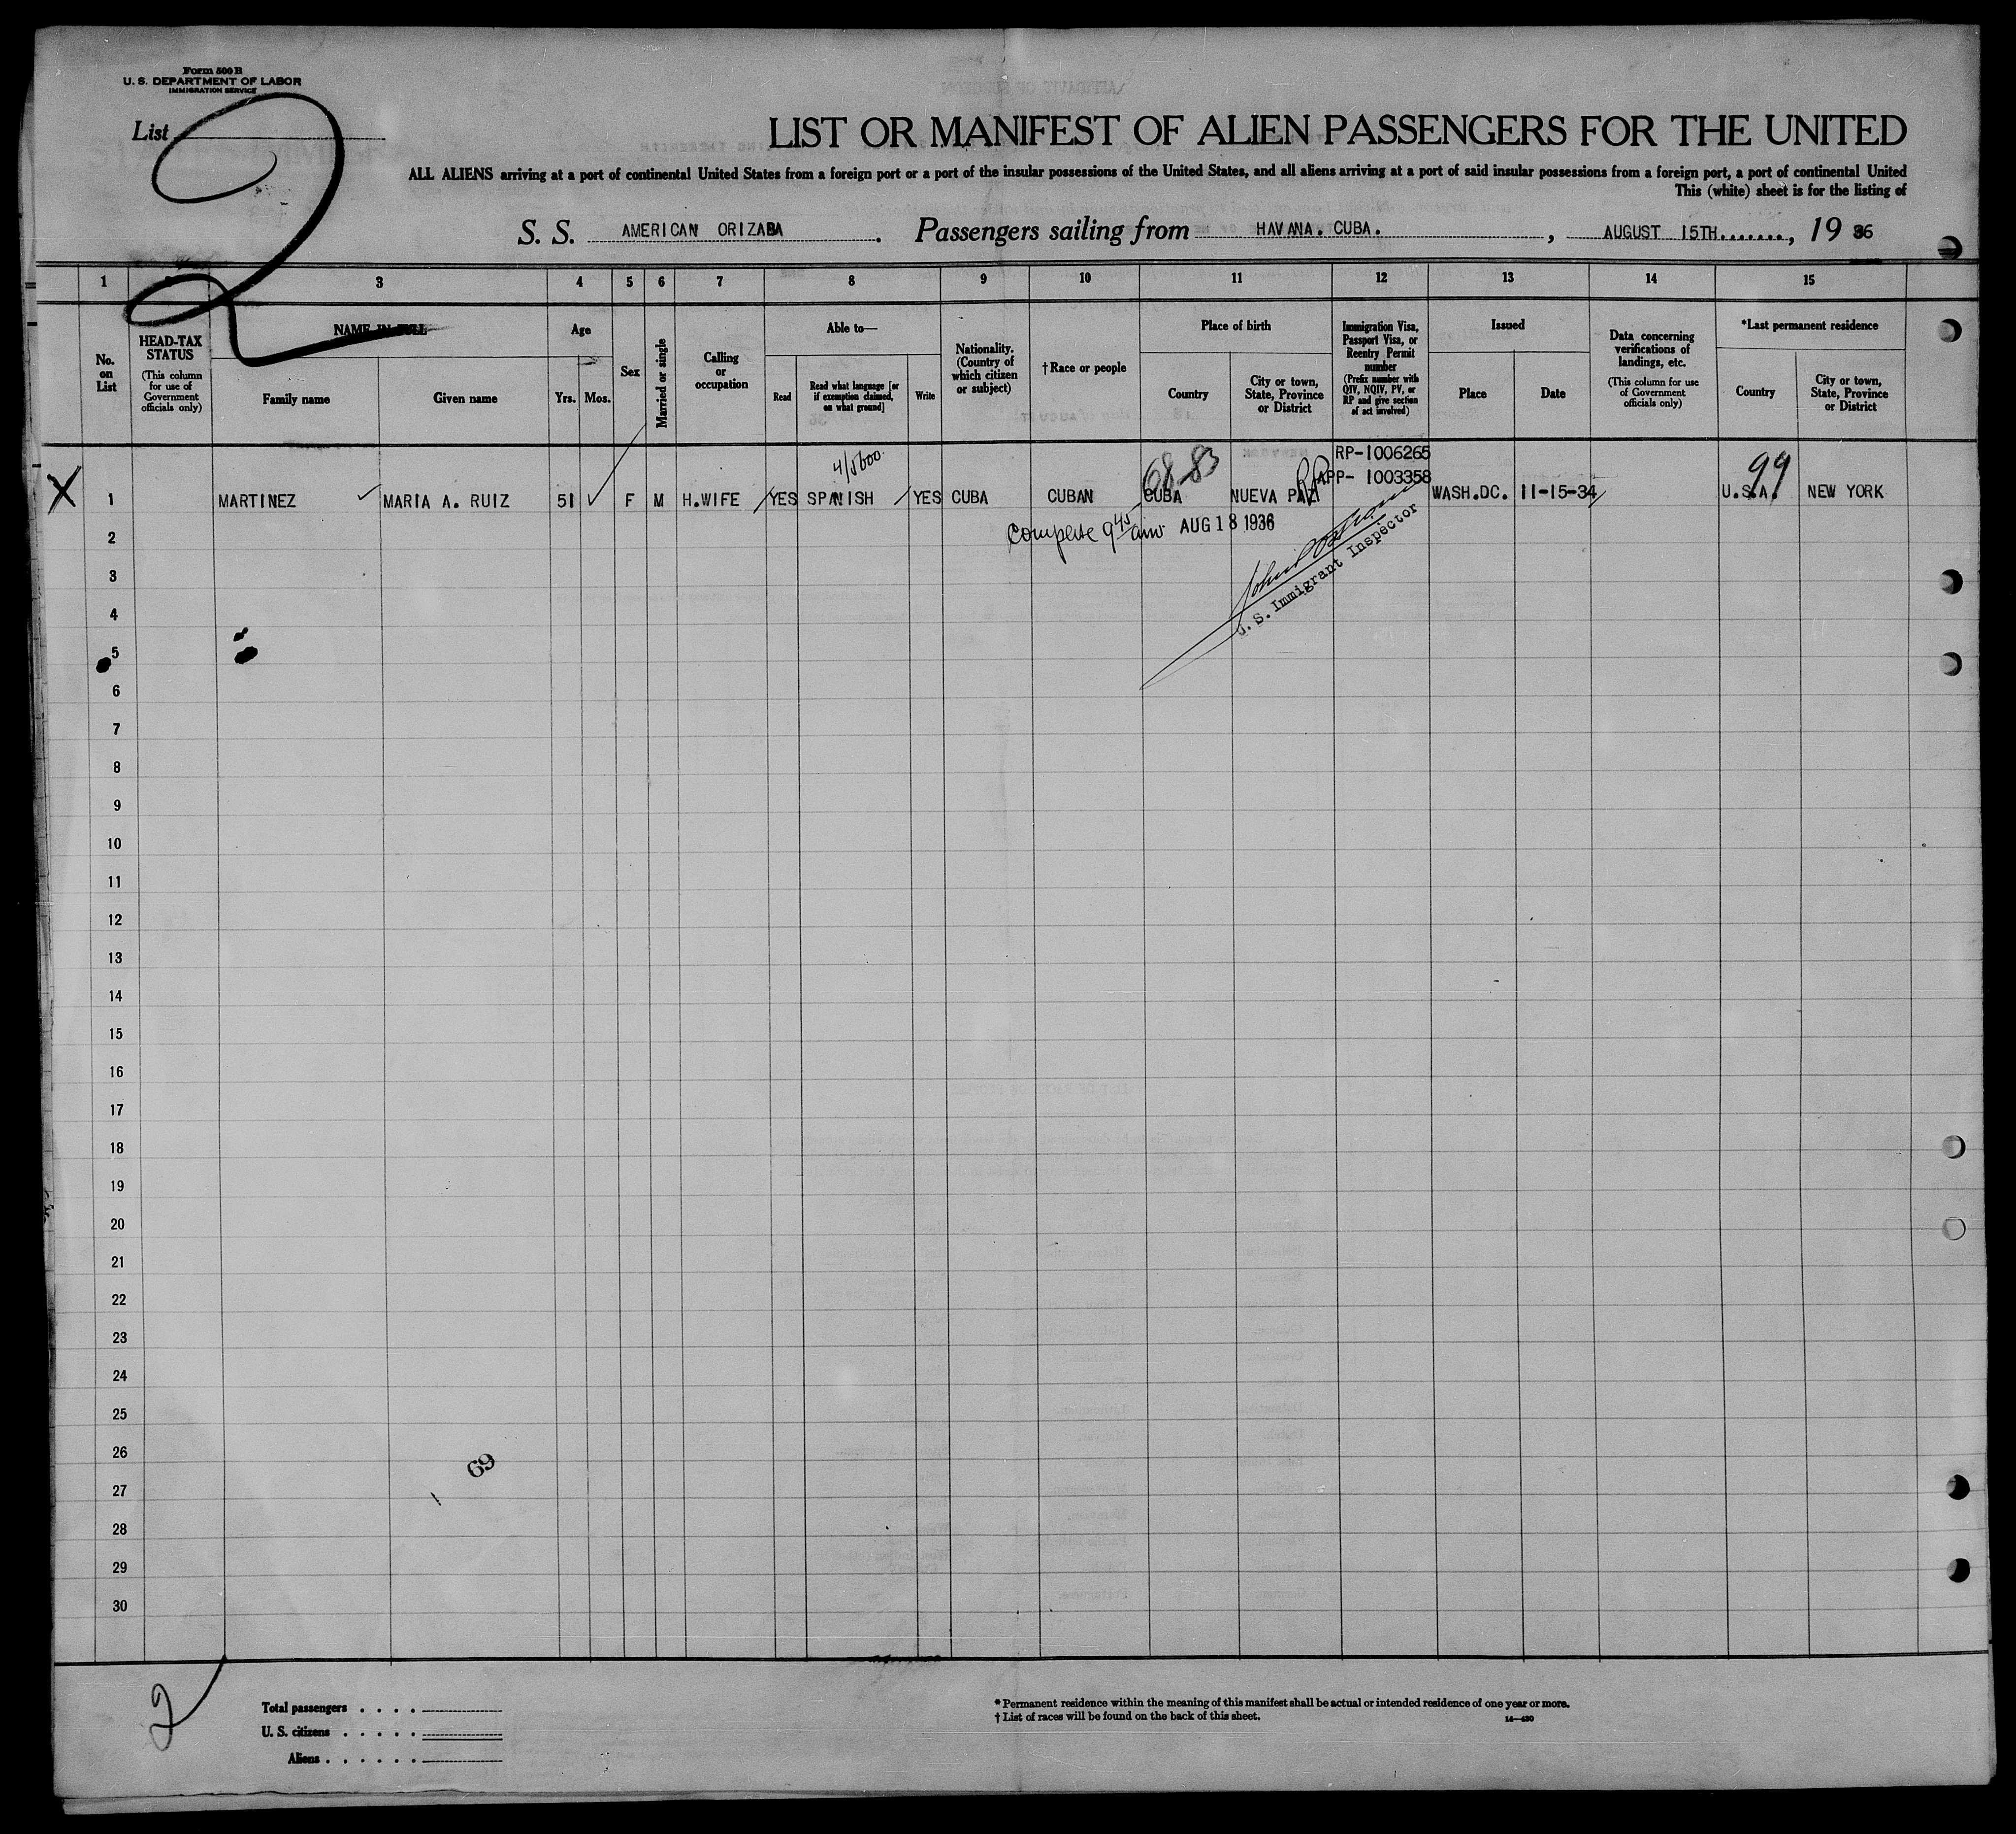 Form 500 B
U. S. DEPARTMENT OF LABOR
IMMIGRATION SERVICE
List 2
LIST OR MANIFEST OF ALIEN PASSENGERS FOR THE UNITED
ALL ALIENS arriving at a port of continental United States from a foreign port or a port of the insular possessions of the United States, and all aliens arriving at a port of said insular possessions from a foreign port, a port of continental United
This (white) sheet is for the listing of
S. S. AMERICAN ORIZABA. Passengers sailing from HAVANA. CUBA. , AUGUST 15TH......., 19 36
1 3 4 5 6 7 8 9 10 11 12 13 14 15
No. on List
HEAD-TAX STATUS
(This column for use of Government officials only)
NAME IN FULL
Family name
Given name
Age
Yrs.
Mos.
Sex
Married or single
Calling or occupation
Able to—
Read
Read what language [or if exemption claimed, on what ground]
Write
Nationality. (Country of which citizen or subject)
†Race or people
Place of birth
Country
City or town, State, Province or District
Immigration Visa, Passport Visa, or Reentry Permit number
(Prefix number with QIV, NQIV, PV, or RP and give section of act involved)
Issued
Place
Date
Data concerning verifications of landings, etc.
(This column for use of Government officials only)
*Last permanent residence
Country
City or town, State, Province or District
4/5600
68-83
RP-1006265
99
APP- 1003358
X 1 MARTINEZ ✓ MARIA A. RUIZ 51 ✓ F M H.WIFE YES SPANISH YES CUBA CUBAN CUBA NUEVA PAZ WASH.DC. 11-15-34 U.S.A. NEW YORK
2 Complete 9 45 am AUG 18 1936
3
U. S. Immigrant Inspector
4
5
6
7
8
9
10
11
12
13
14
15
16
17
18
19
20
21
22
23
24
25
26
69
27
28
29
30
2
Total passengers . . . .
U. S. citizens . . . . .
Aliens . . . . . .
* Permanent residence within the meaning of this manifest shall be actual or intended residence of one year or more.
† List of races will be found on the back of this sheet.
14—430